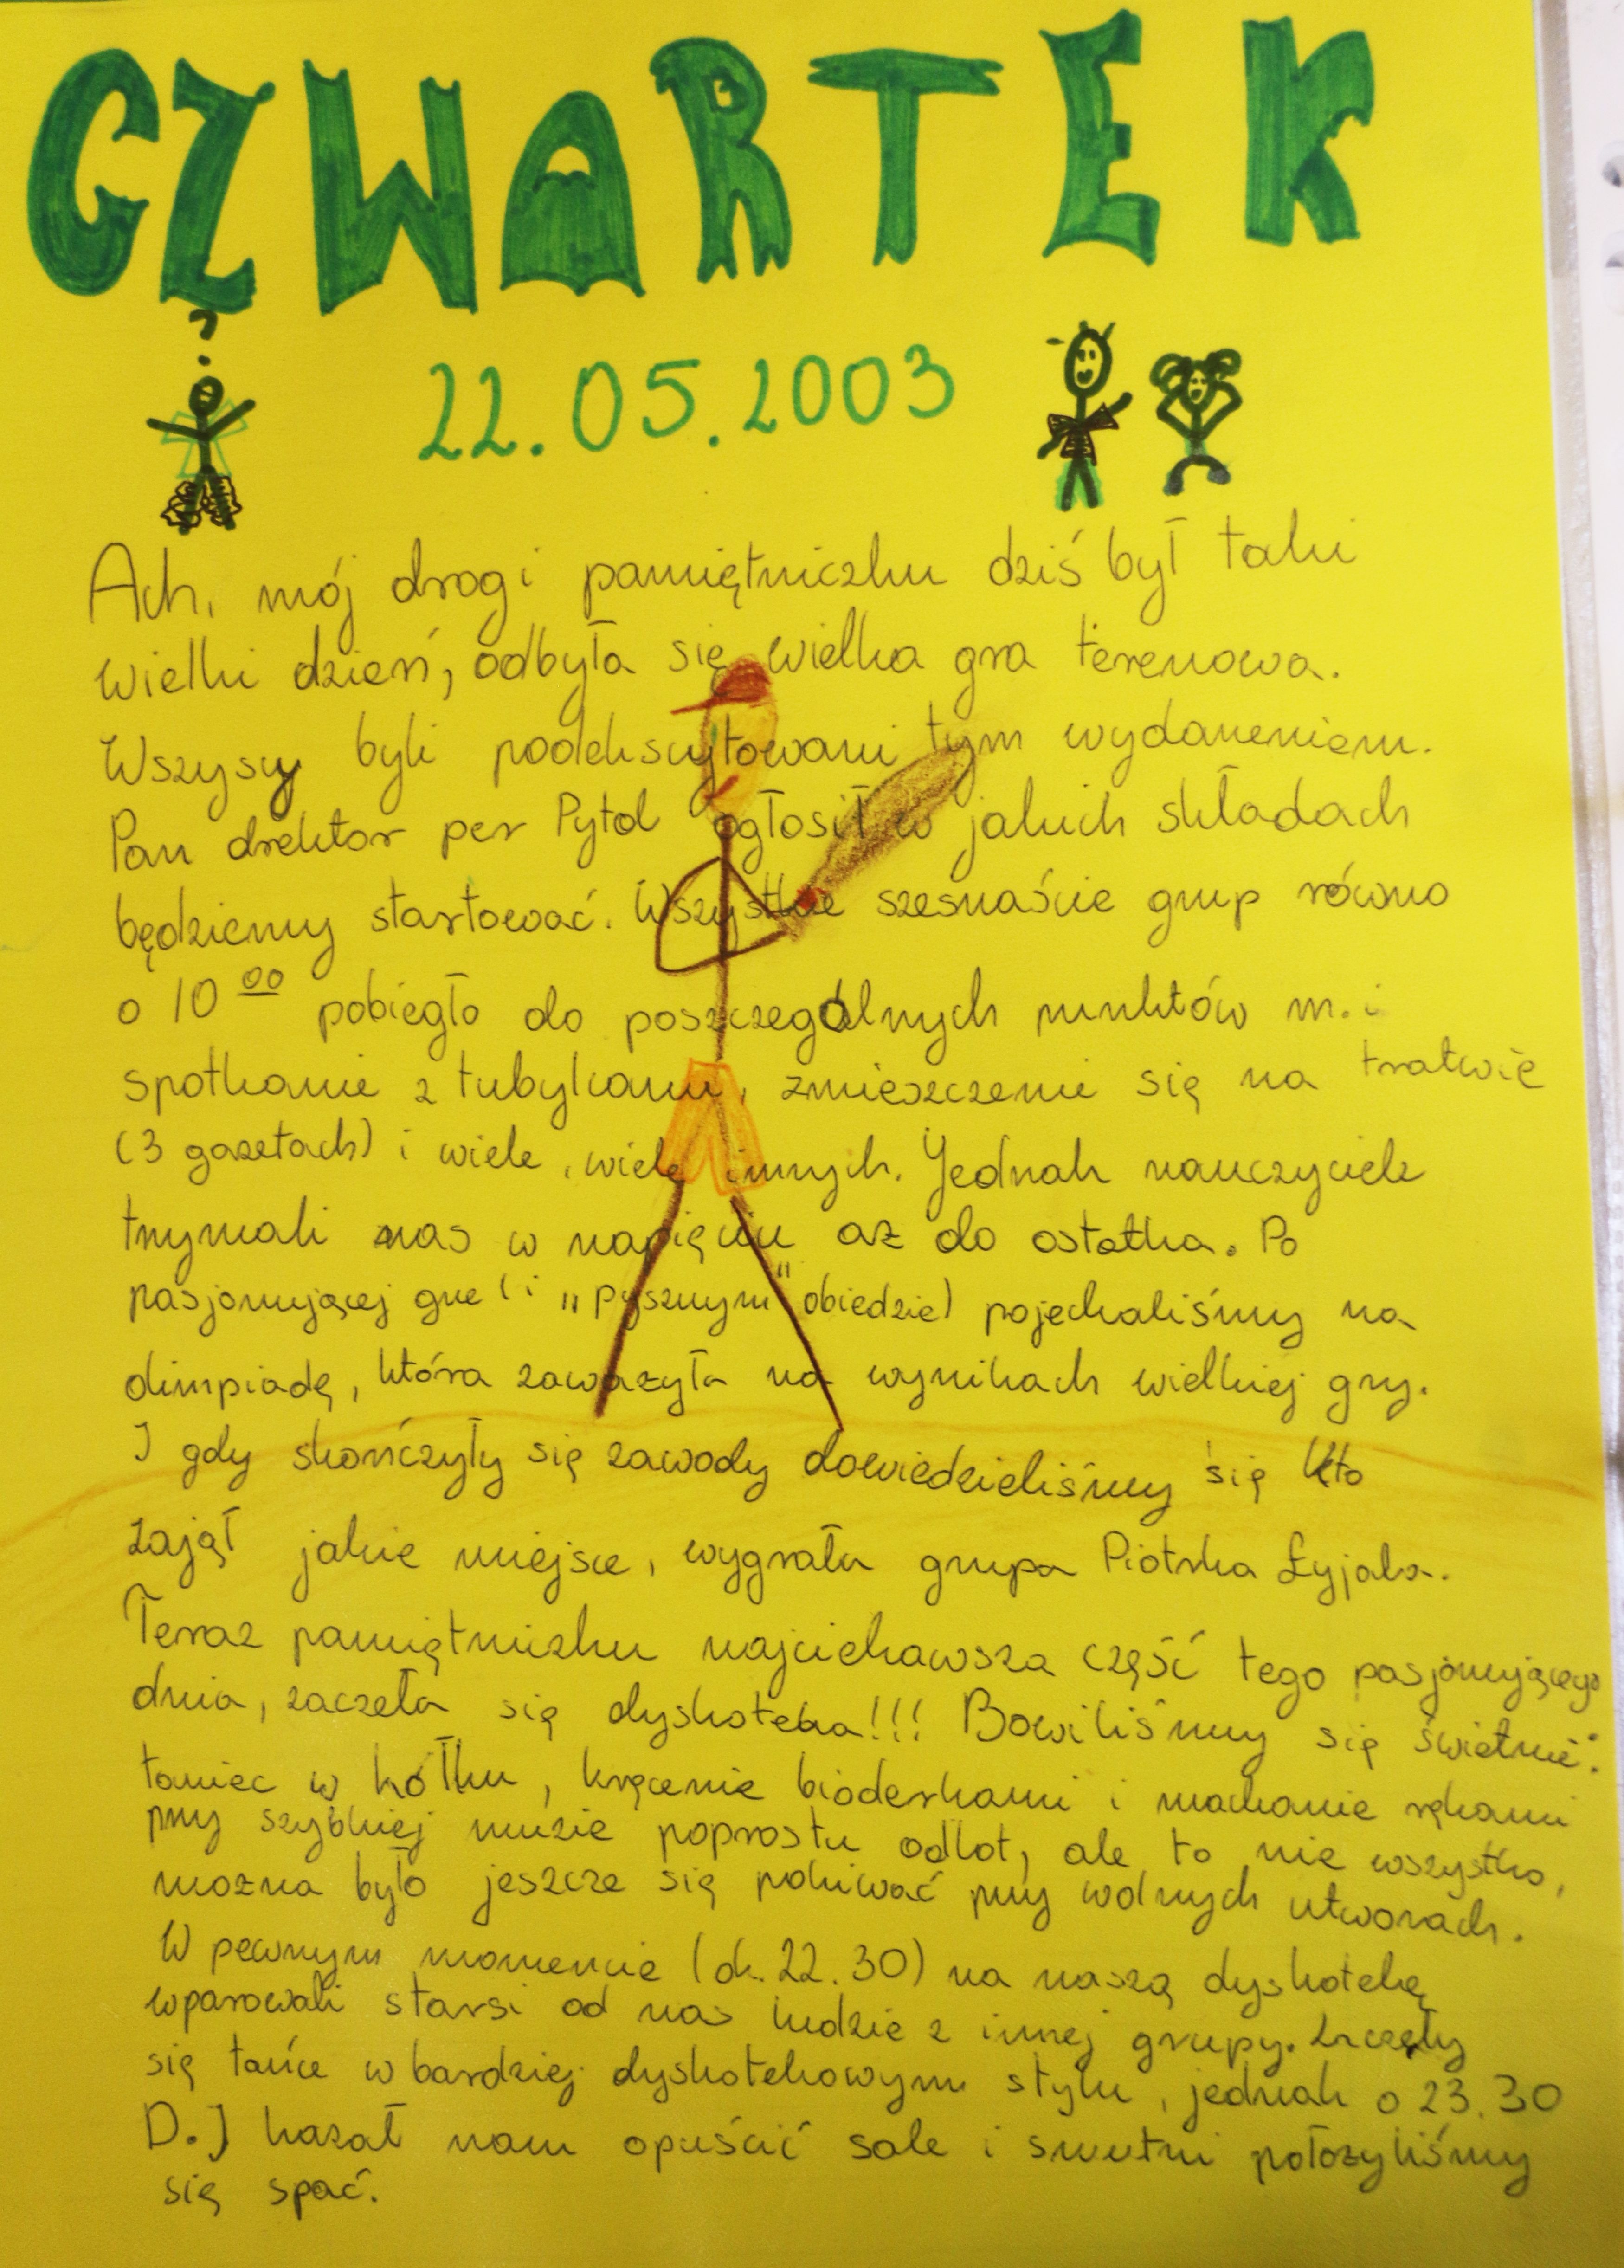 CZWARTEK
22.05.2003
Ach, mój drogi pamiętniczku dziś był taki
wielki dzień, odbyła się wielka gra terenowa.
Wszyscy byli podekscytowani tym wydarzeniem.
Pan drektor per Pytol ogłosił w jakich składach
będziemy startować. Wszystkie szesnaście grup równo
o 10 00 pobiegło do poszczególnych punktów m.i
spotkanie z tubylcami, zmieszczenie się na tratwie
(3 gazetach) i wiele, wiele innych. Jednak nauczyciele
trzymali nas w napięciu aż do ostatka. Po
pasjonującej grze (i „pysznym" obiedzie) pojechaliśmy na
olimpiadę, która zaważyła na wynikach wielkiej gry.
I gdy skończyły się zawody dowiedzieliśmy się kto
zajął jakie miejsce, wygrała grupa Piotrka Łyjaka.
Teraz pamiętniczku najciekawsza część tego pasjonującego
dnia, zaczeła się dyskoteka!!! Bawiliśmy się świetnie:
taniec w kółku, kręcenie bioderkami i machanie rękami
przy szybkiej muzie poprostu odlot, ale to nie wszystko,
można było jeszcze się pokiwać przy wolnych utworach.
W pewnym momencie (ok. 22.30) na naszą dyskotekę
wparowali starsi od nas ludzie z innej grupy. Zaczęły
się tańce w bardziej dyskotekowym stylu, jednak o 23.30
D.J kazał nam opuścić sale i smutni położyliśmy
się spać.